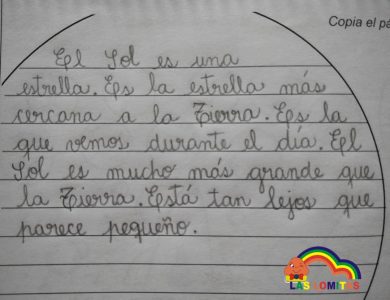 Copia el pá
El Sol es una
estrella. Es la estrella más
cercana a la Tierra. Es la
que vemos durante el día. El
Sol es mucho más grande que
la Tierra. Está tan lejos que
parece pequeño.
LAS LOMITAS